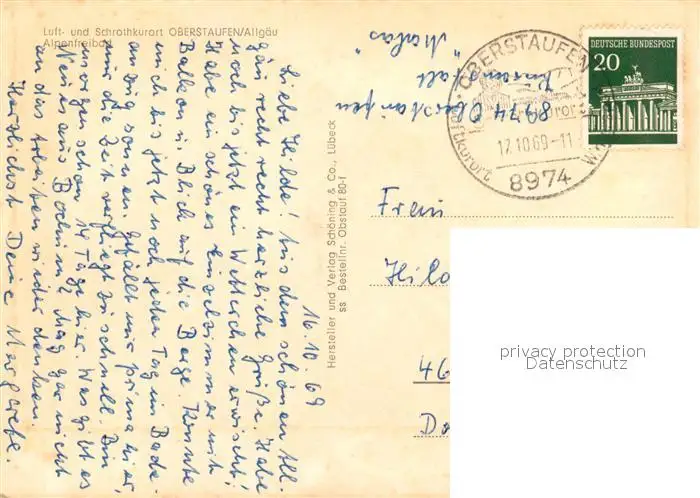 Luft- und Schrothkurort OBERSTAUFEN/Allgäu
Alpenfreibad
16.10.69
Liebe Hilde! Aus dem schönen All-
gäu recht recht herzliche Grüße. Habe
noch bis jetzt ein Wetterchen erwischt!
Habe ein schönes Einzelzimmer mit
Balkon u. Blick auf die Berge. Konnte
mich bis jetzt noch jeden Tag im Bade-
anzug sonnen. Gefällt mir prima hier,
nur die Zeit verfliegt zu schnell. Bin
morgen schon 14 Tage hier. Was gibt es
Neues aus Bochum, mag gar nicht
an das Arbeiten wieder denken.
Herzlichst Deine Margarete.
Hersteller und Verlag Schöning & Co., Lübeck
ss Bestellnr. Obstauf 80-f
Kuranstalt "Malas"
8974 Oberstaufen
OBERSTAUFEN
17.10.69-11
8974
DEUTSCHE BUNDESPOST
20
Frau
Hild
46
Do
privacy protection
Datenschutz